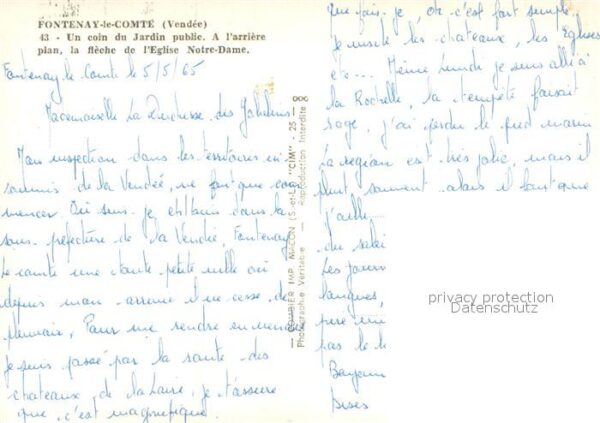 FONTENAY-le-COMTE (Vendée)
43 - Un coin du Jardin public. A l'arrière
plan, la flèche de l'Eglise Notre-Dame.
Fontenay le Comte le 5/5/65
Mademoiselle La Duchesse des
Mon inspection dans les territoires in
soumis de la Vendée, ne fait que com
mencer. Où suis-je, et bien dans la
sous-préfecture de la Vendée, Fontenay
le comte une petite ville où
depuis mon arrivée il ne cesse de
pleuvoir, Pour me rendre en
je suis passé par la route des
chateaux de la Loire, je t'assure
que c'est magnifique.
COMBIER IMP. MACON (S.-et-L.) "CIM" - 25
Photographie Véritable - Reproduction Interdite
que fais-je, Oh c'est fort simple
Je visite les chateaux, les Eglises
etc... Même Lundi je suis allé à
la Rochelle, la tempête faisait
rage, j'ai perdu le pied marin
La région est très jolie, mais il
pleut souvent alors il faut que
j'aille
du solei
Les jour
langues,
pas le
Bises
privacy protection
Datenschutz